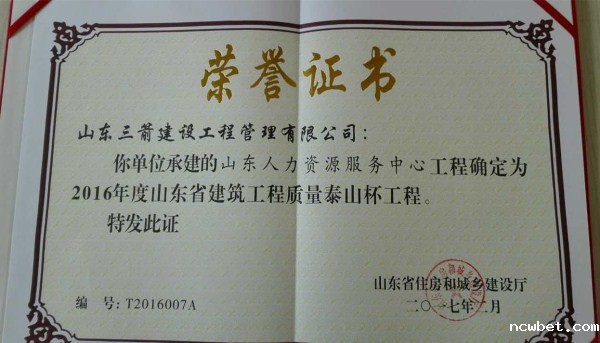 荣誉证书
山东三箭建设工程管理有限公司：
你单位承建的山东人力资源服务中心工程确定为
2016年度山东省建筑工程质量泰山杯工程。
特发此证
山东省住房和城乡建设厅
编 号：T2016007A
二〇一七年二月
ncwbet.com